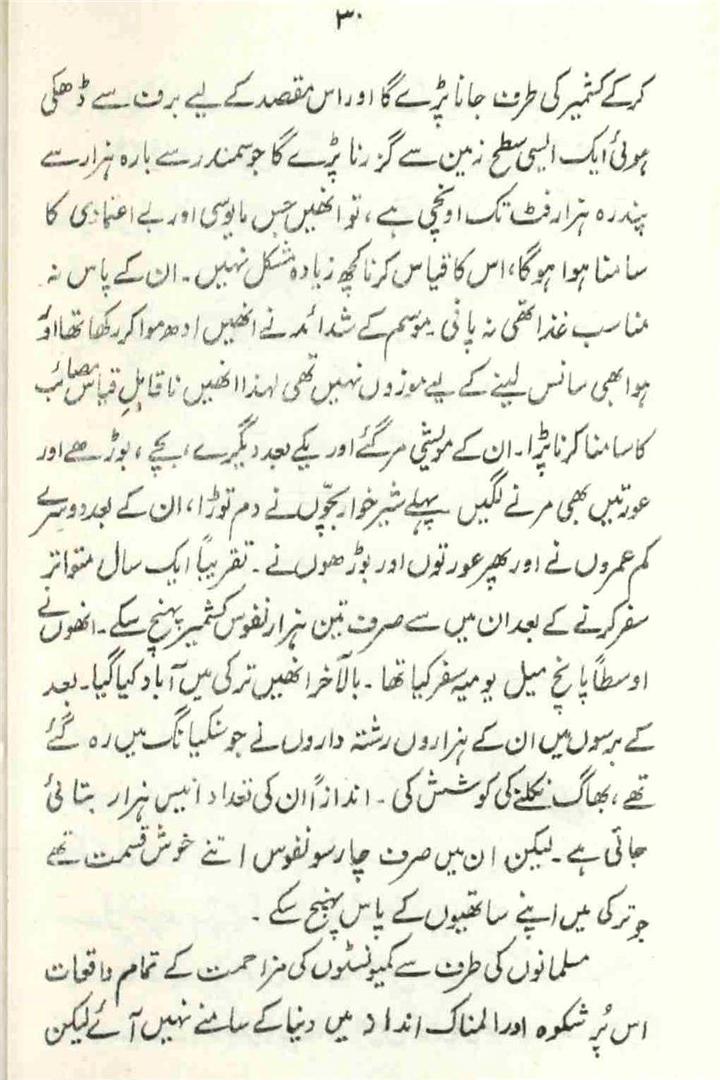 ۳۰
کر کے کشمیر کی طرف جانا پڑے گا اور اس مقصد کے لیے برف سے ڈھکی
ہوئی ایک ایسی سطح زمین سے گزرنا پڑے گا جو سمندر سے بارہ ہزار سے
پندرہ ہزار فٹ تک اونچی ہے، تو انھیں جس مایوسی اور بے اعتمادی کا
سامنا ہوا ہوگا، اس کا قیاس کرنا کچھ زیادہ مشکل نہیں۔ ان کے پاس نہ
مناسب غذا تھی نہ پانی۔ موسم کے شدائد نے انھیں ادھ موا کر رکھا تھا اور
ہوا بھی سانس لینے کے لیے موزوں نہیں تھی لہذا انھیں ناقابلِ قیاس مصائب
کا سامنا کرنا پڑا۔ ان کے مویشی مر گئے اور یکے بعد دیگرے، بچے، بوڑھے اور
عورتیں بھی مرنے لگیں پہلے شیر خوار بچّوں نے دم توڑا، ان کے بعد دوسرے
کم عمروں نے اور پھر عورتوں اور بوڑھوں نے۔ تقریباً ایک سال متواتر
سفر کرنے کے بعد ان میں سے صرف تین ہزار نفوس کشمیر پہنچ سکے۔ انھوں نے
اوسطاً پانچ میل یومیہ سفر کیا تھا۔ بالآخر انھیں ترکی میں آباد کیا گیا۔ بعد
کے برسوں میں ان کے ہزاروں رشتہ داروں نے جو سنکیانگ میں رہ گئے
تھے، بھاگ نکلنے کی کوشش کی۔ اندازاً ان کی تعداد انیس ہزار بتائی
جاتی ہے۔ لیکن ان میں صرف چار سو نفوس اتنے خوش قسمت تھے
جو ترکی میں اپنے ساتھیوں کے پاس پہنچ سکے۔
مسلمانوں کی طرف سے کمیونسٹوں کی مزاحمت کے تمام واقعات
اس پُر شکوہ اور المناک انداز میں دنیا کے سامنے نہیں آئے لیکن